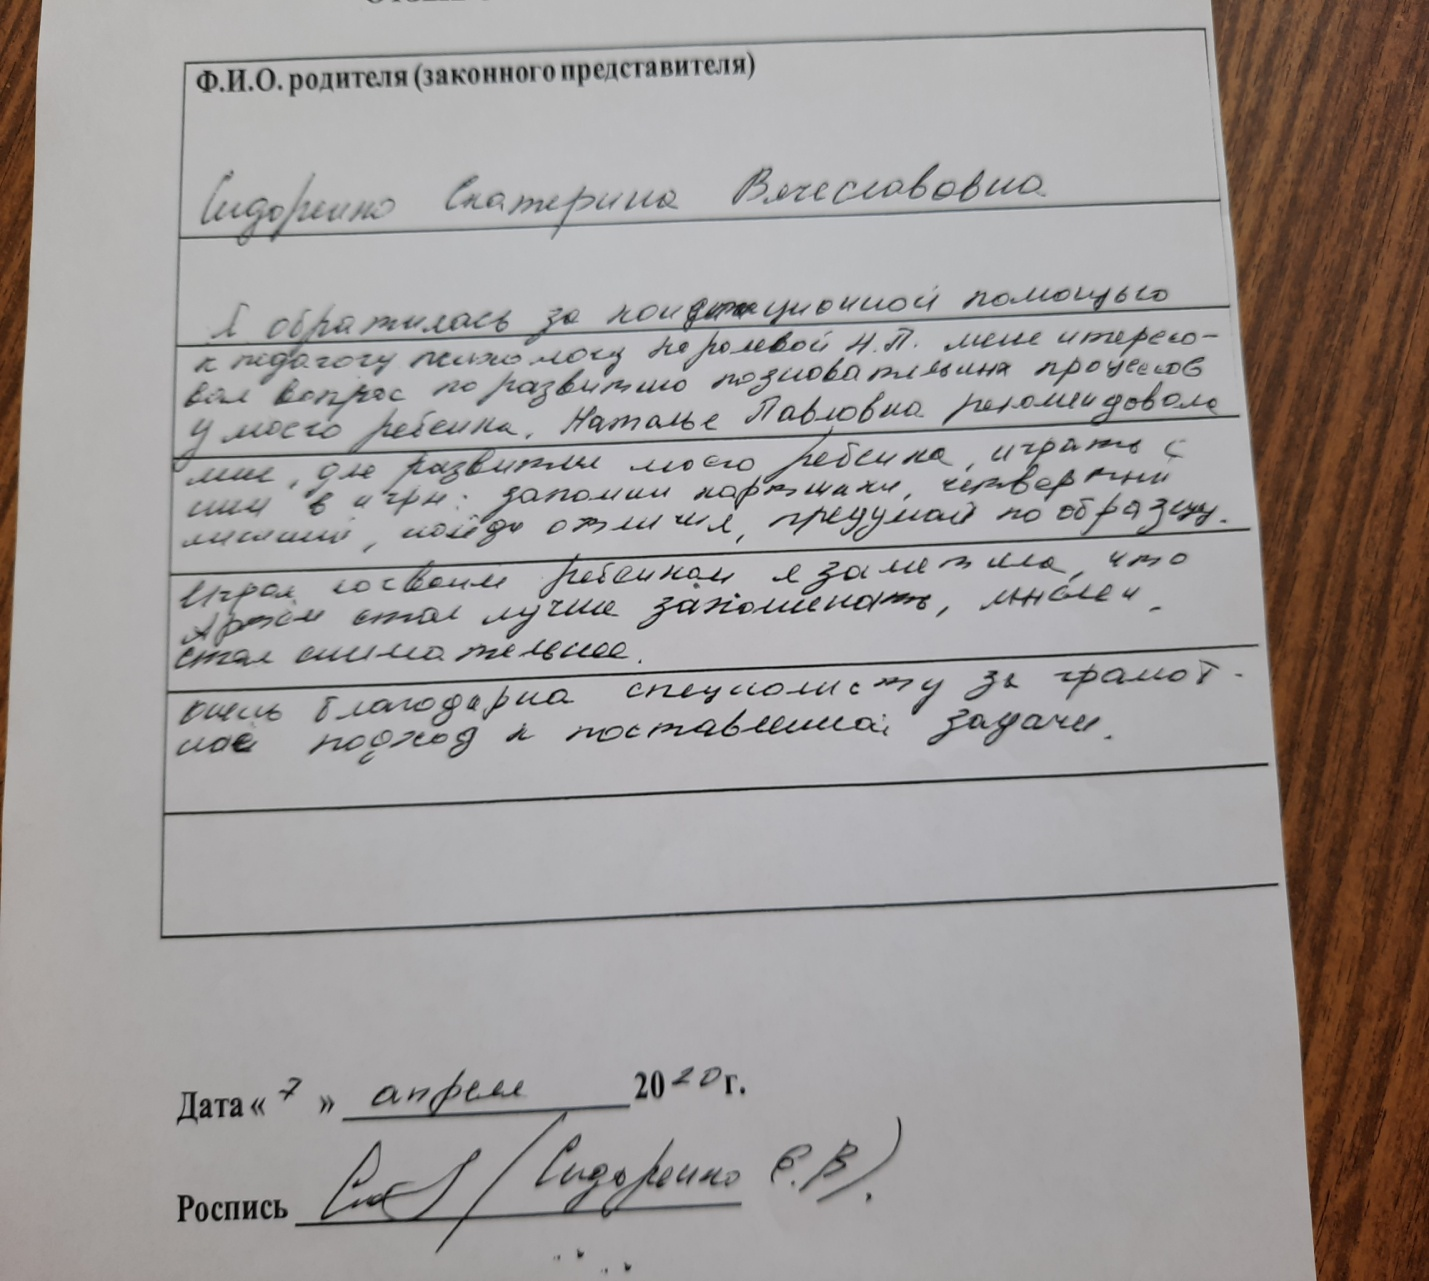 Ф.И.О. родителя (законного представителя)
Сидоренко Екатерина Вячеславовна
Я обратилась за помощью
к педагогу психологу Королевой Н.П. меня итересо-
вал вопрос по развитию познавательных процессов
у моего ребенка. Наталье Павловна рекомендовала
мне, для развития моего ребенка, играть с
ним в игры: запомни картинки, четвертый
лишний, найди отличия, придумай по образцу.
Играя со своим ребенком я заметила, что
Артем стал лучше запоминать,
стал внимательнее.
очень благодарна специалисту за грамот-
ное подход к поставленной задачи.
Дата « 7 » апреля 2020 г.
Роспись (Сидоренко Е.В).